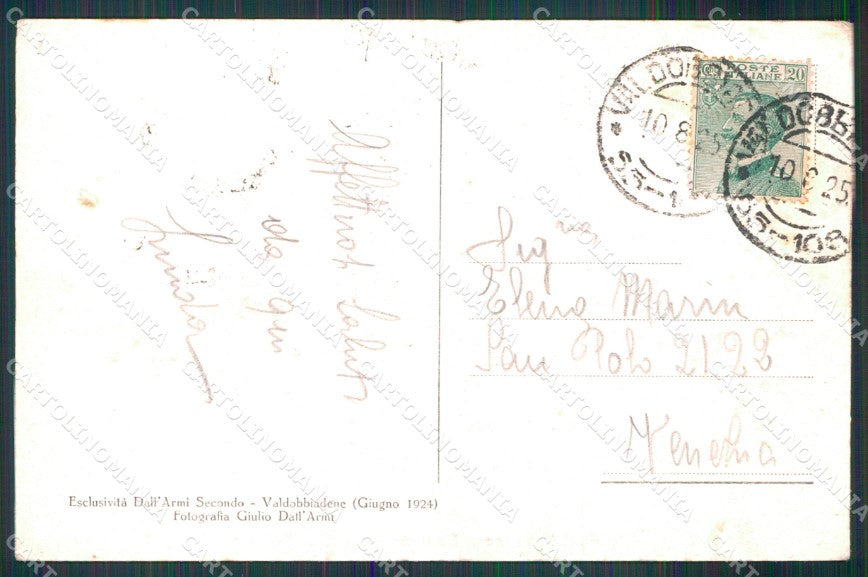 Affettuosi Saluti
da qui
Esclusività Dall'Armi Secondo - Valdobbiadene (Giugno 1924)
Fotografia Giulio Dall'Armi
POSTE
ITALIANE 20
10 8 25
55-108
10 8 25
Sig.na
Elena Marin
San Polo 2122
Venezia
CARTOLINOMANIA